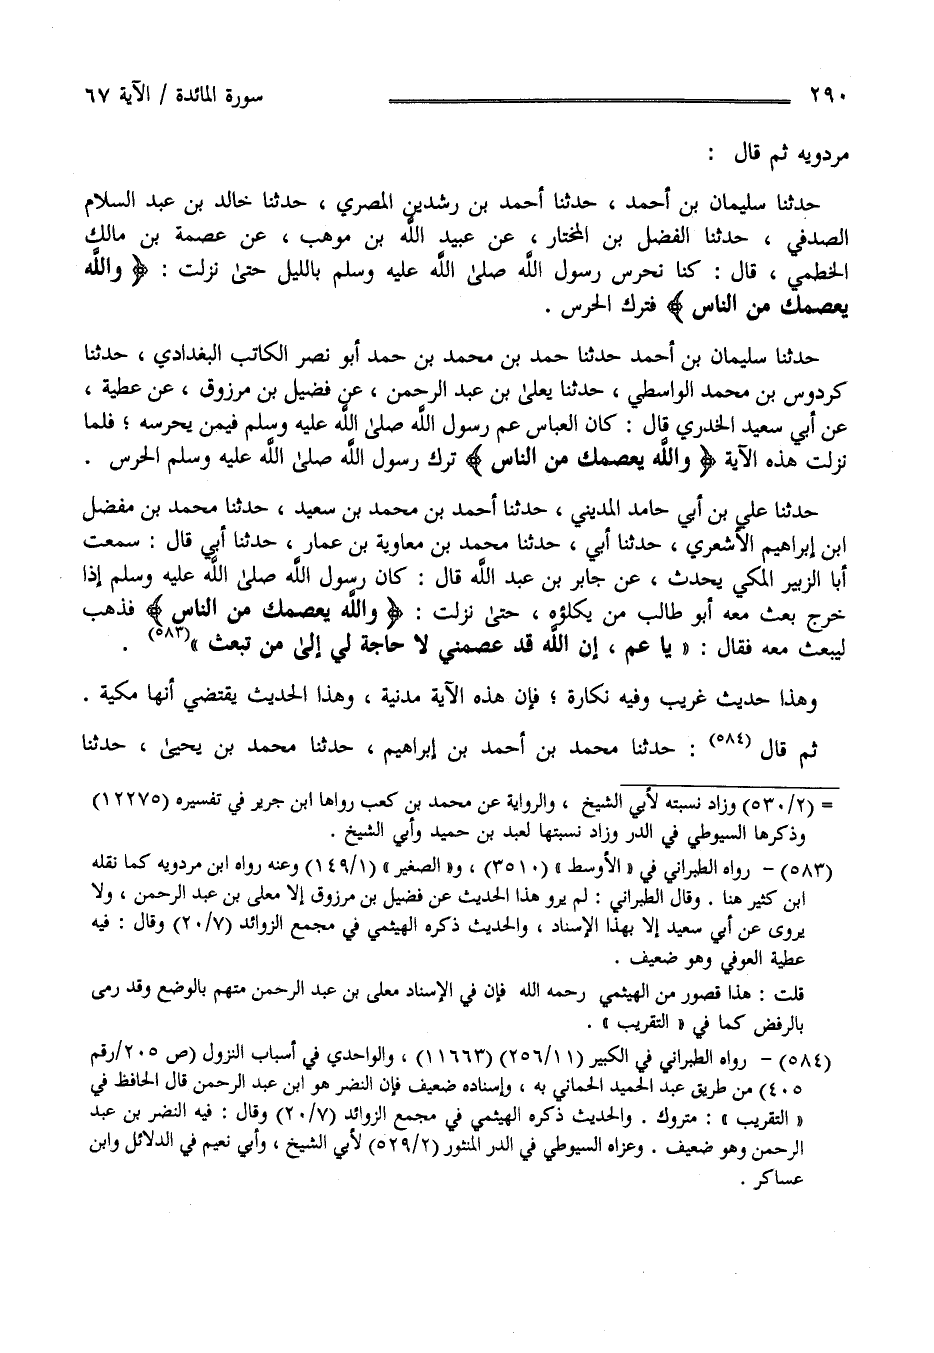 ٢٩٠ سورة المائدة / الآية ٦٧
مردويه ثم قال :
حدثنا سليمان بن أحمد ، حدثنا أحمد بن رشدين المصري ، حدثنا خالد بن عبد السلام
الصدفي ، حدثنا الفضل بن المختار ، عن عبيد اللَّه بن موهب ، عن عصمة بن مالك
الخطمي ، قال : كنا نحرس رسول اللَّه صلىٰ اللَّه عليه وسلم بالليل حتىٰ نزلت : ﴿ واللَّه
يعصمك من الناس ﴾ فترك الحرس .
حدثنا سليمان بن أحمد حدثنا حمد بن محمد بن حمد أبو نصر الكاتب البغدادي ، حدثنا
كردوس بن محمد الواسطي ، حدثنا يعلىٰ بن عبد الرحمن ، عن فضيل بن مرزوق ، عن عطية ،
عن أبي سعيد الخدري قال : كان العباس عم رسول اللَّه صلىٰ اللَّه عليه وسلم فيمن يحرسه ؛ فلما
نزلت هذه الآية ﴿ واللَّه يعصمك من الناس ﴾ ترك رسول اللَّه صلىٰ اللَّه عليه وسلم الحرس .
حدثنا علي بن أبي حامد المديني ، حدثنا أحمد بن محمد بن سعيد ، حدثنا محمد بن مفضل
ابن إبراهيم الأشعري ، حدثنا أبي ، حدثنا محمد بن معاوية بن عمار ، حدثنا أبي قال : سمعت
أبا الزبير المكي يحدث ، عن جابر بن عبد اللَّه قال : كان رسول اللَّه صلىٰ اللَّه عليه وسلم إذا
خرج بعث معه أبو طالب من يكلؤه ، حتىٰ نزلت : ﴿ واللَّه يعصمك من الناس ﴾ فذهب
ليبعث معه فقال : « يا عم ، إن اللَّه قد عصمني لا حاجة لي إلىٰ من تبعث »(٥٨٣) .
وهذا حديث غريب وفيه نكارة ؛ فإن هذه الآية مدنية ، وهذا الحديث يقتضي أنها مكية .
ثم قال (٥٨٤) : حدثنا محمد بن أحمد بن إبراهيم ، حدثنا محمد بن يحيىٰ ، حدثنا
= (٥٣٠/٢) وزاد نسبته لأبي الشيخ ، والرواية عن محمد بن كعب رواها ابن جرير في تفسيره (١٢٢٧٥)
وذكرها السيوطي في الدر وزاد نسبتها لعبد بن حميد وأبي الشيخ .
(٥٨٣) – رواه الطبراني في « الأوسط » (٣٥١٠) ، و« الصغير » (١٤٩/١) وعنه رواه ابن مردويه كما نقله
ابن كثير هنا . وقال الطبراني : لم يرو هذا الحديث عن فضيل بن مرزوق إلا معلى بن عبد الرحمن ، ولا
يروى عن أبي سعيد إلا بهذا الإسناد ، والحديث ذكره الهيثمي في مجمع الزوائد (٢٠/٧) وقال : فيه
عطية العوفي وهو ضعيف .
قلت : هذا قصور من الهيثمي رحمه الله فإن في الإسناد معلى بن عبد الرحمن متهم بالوضع وقد رمى
بالرفض كما في « التقريب » .
(٥٨٤) – رواه الطبراني في الكبير (٢٥٦/١١) (١١٦٦٣) ، والواحدي في أسباب النزول (ص ٢٠٥/رقم
٤٠٥) من طريق عبد الحميد الحماني به ، وإسناده ضعيف فإن النضر هو ابن عبد الرحمن قال الحافظ في
« التقريب » : متروك . والحديث ذكره الهيثمي في مجمع الزوائد (٢٠/٧) وقال : فيه النضر بن عبد
الرحمن وهو ضعيف . وعزاه السيوطي في الدر المنثور (٥٢٩/٢) لأبي الشيخ ، وأبي نعيم في الدلائل وابن
عساكر .